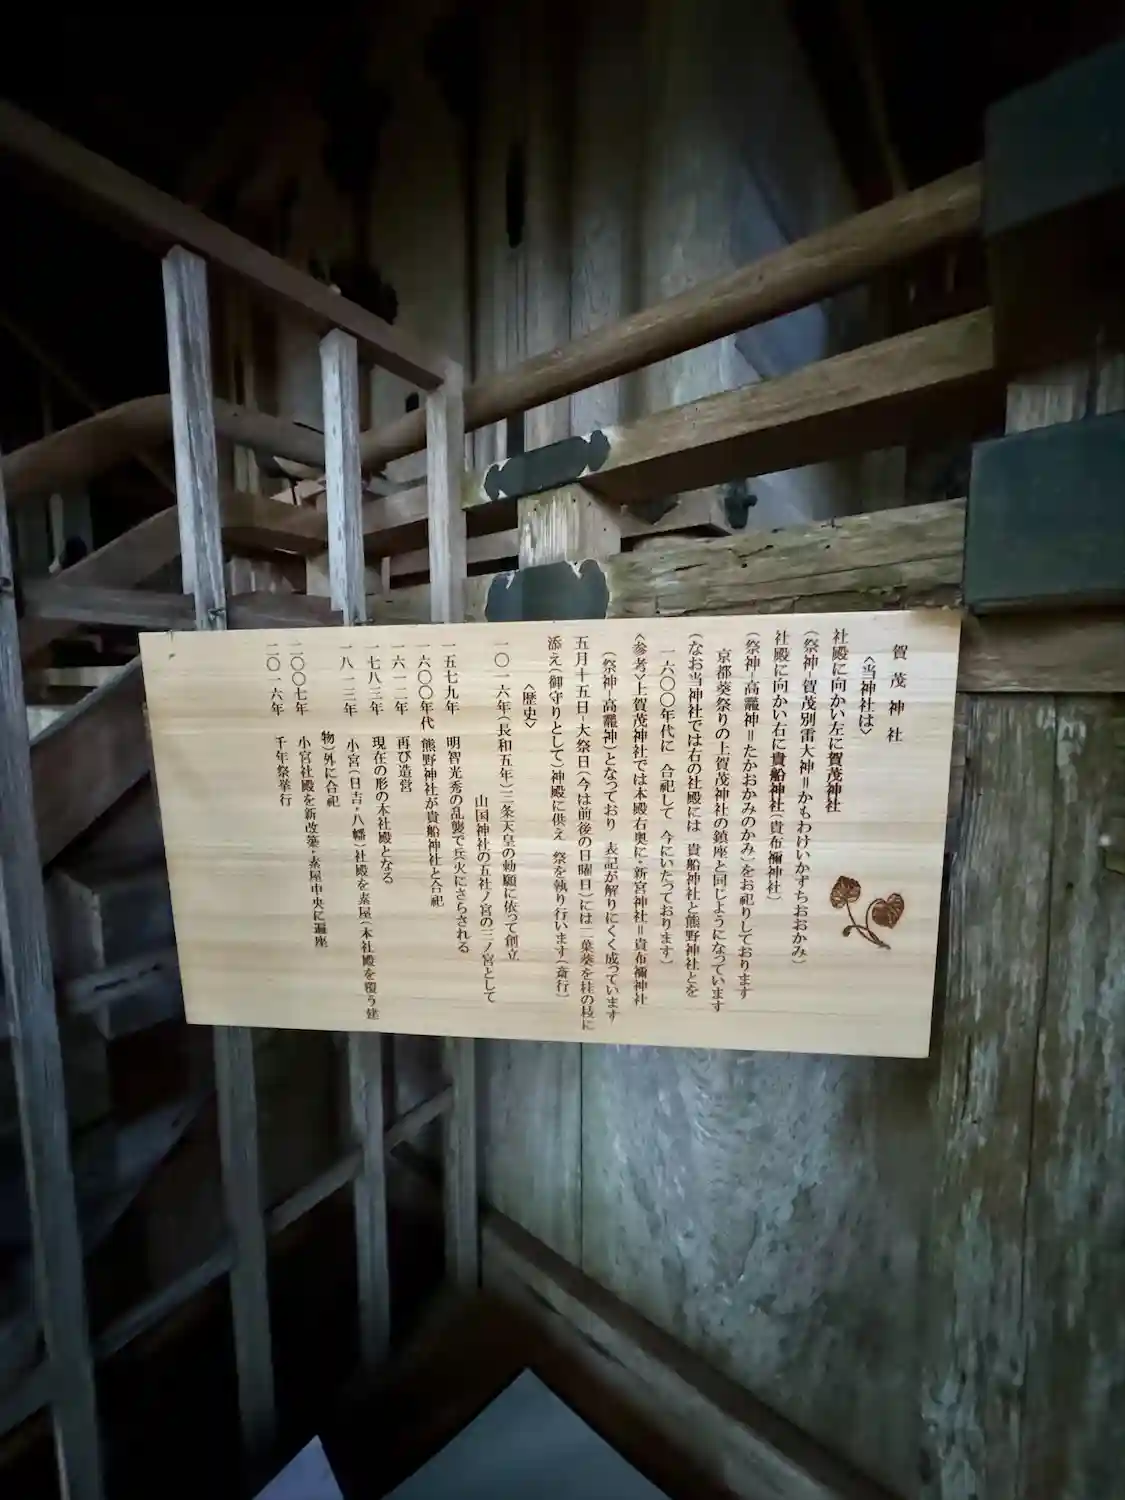 賀茂神社
〈当神社は〉
社殿に向かい左に賀茂神社
(祭神−賀茂別雷大神＝かもわけいかずちおおかみ)
社殿に向かい右に貴船神社(貴布禰神社)
(祭神−高龗神＝たかおかみのかみ)をお祀りしております
京都葵祭りの上賀茂神社の鎮座と同じようになっています
(なお当神社では右の社殿には　貴船神社と熊野神社とを
一六〇〇年代に　合祀して　今にいたっております)
〈参考〉上賀茂神社では本殿右奥に・新宮神社＝貴布禰神社
(祭神−高龗神)となっており　表記が解りにくく成っています
五月十五日−大祭日(今は前後の日曜日)には二葉葵を桂の枝に
添え(御守りとして)神殿に供え　祭を執り行います(斎行)
〈歴史〉
一〇一六年(長和五年)三条天皇の勅願に依って創立
山国神社の五社ノ宮の三ノ宮として
一五七九年　明智光秀の乱襲で兵火にさらされる
一六〇〇年代　熊野神社が貴船神社と合祀
一六一二年　再び造営
一七八三年　現在の形の本社殿となる
一八一三年　小宮(日吉・八幡)社殿を素屋(本社殿を覆う建
物)外に合祀
二〇〇七年　小宮社殿を新改築・素屋中央に遍座
二〇一六年　千年祭挙行